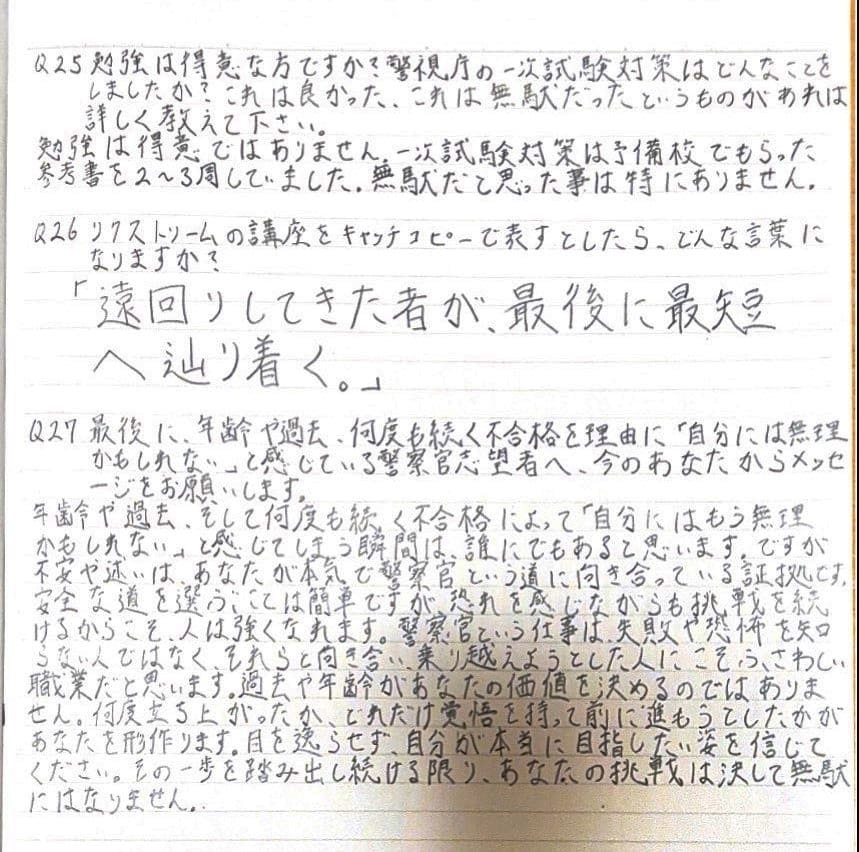 Q25 勉強は得意な方ですか?警視庁の一次試験対策はどんなことを
しましたか?これは良かった、これは無駄だったというものがあれば
詳しく教えて下さい。
勉強は得意ではありません。一次試験対策は予備校でもらった
参考書を2〜3周していました。無駄だと思った事は特にありません。
Q26 リクストリームの講座をキャッチコピーで表すとしたら、どんな言葉に
なりますか?
「遠回りしてきた者が、最後に最短
へ辿り着く。」
Q27 最後に、年齢や過去、何度も続く不合格を理由に「自分には無理
かもしれない」と感じている警察官志望者へ、今のあなたからメッセ
ージをお願いします。
年齢や過去、そして何度も続く不合格によって「自分にはもう無理
かもしれない」と感じてしまう瞬間は、誰にでもあると思います。ですが
不安や迷いは、あなたが本気で警察官という道に向き合っている証拠です。
安全な道を選ぶことは簡単ですが、恐れを感じながらも挑戦を続
けるからこそ、人は強くなれます。警察官という仕事は、失敗や恐怖を知
らない人ではなく、それらと向き合い、乗り越えようとした人にこそふさわしい
職業だと思います。過去や年齢があなたの価値を決めるのではありま
せん。何度立ち上がったか、どれだけ覚悟を持って前に進もうとしたかが
あなたを形作ります。目を逸らせず、自分が本当に目指したい姿を信じて
ください。その一歩を踏み出し続ける限り、あなたの挑戦は決して無駄
にはなりません。